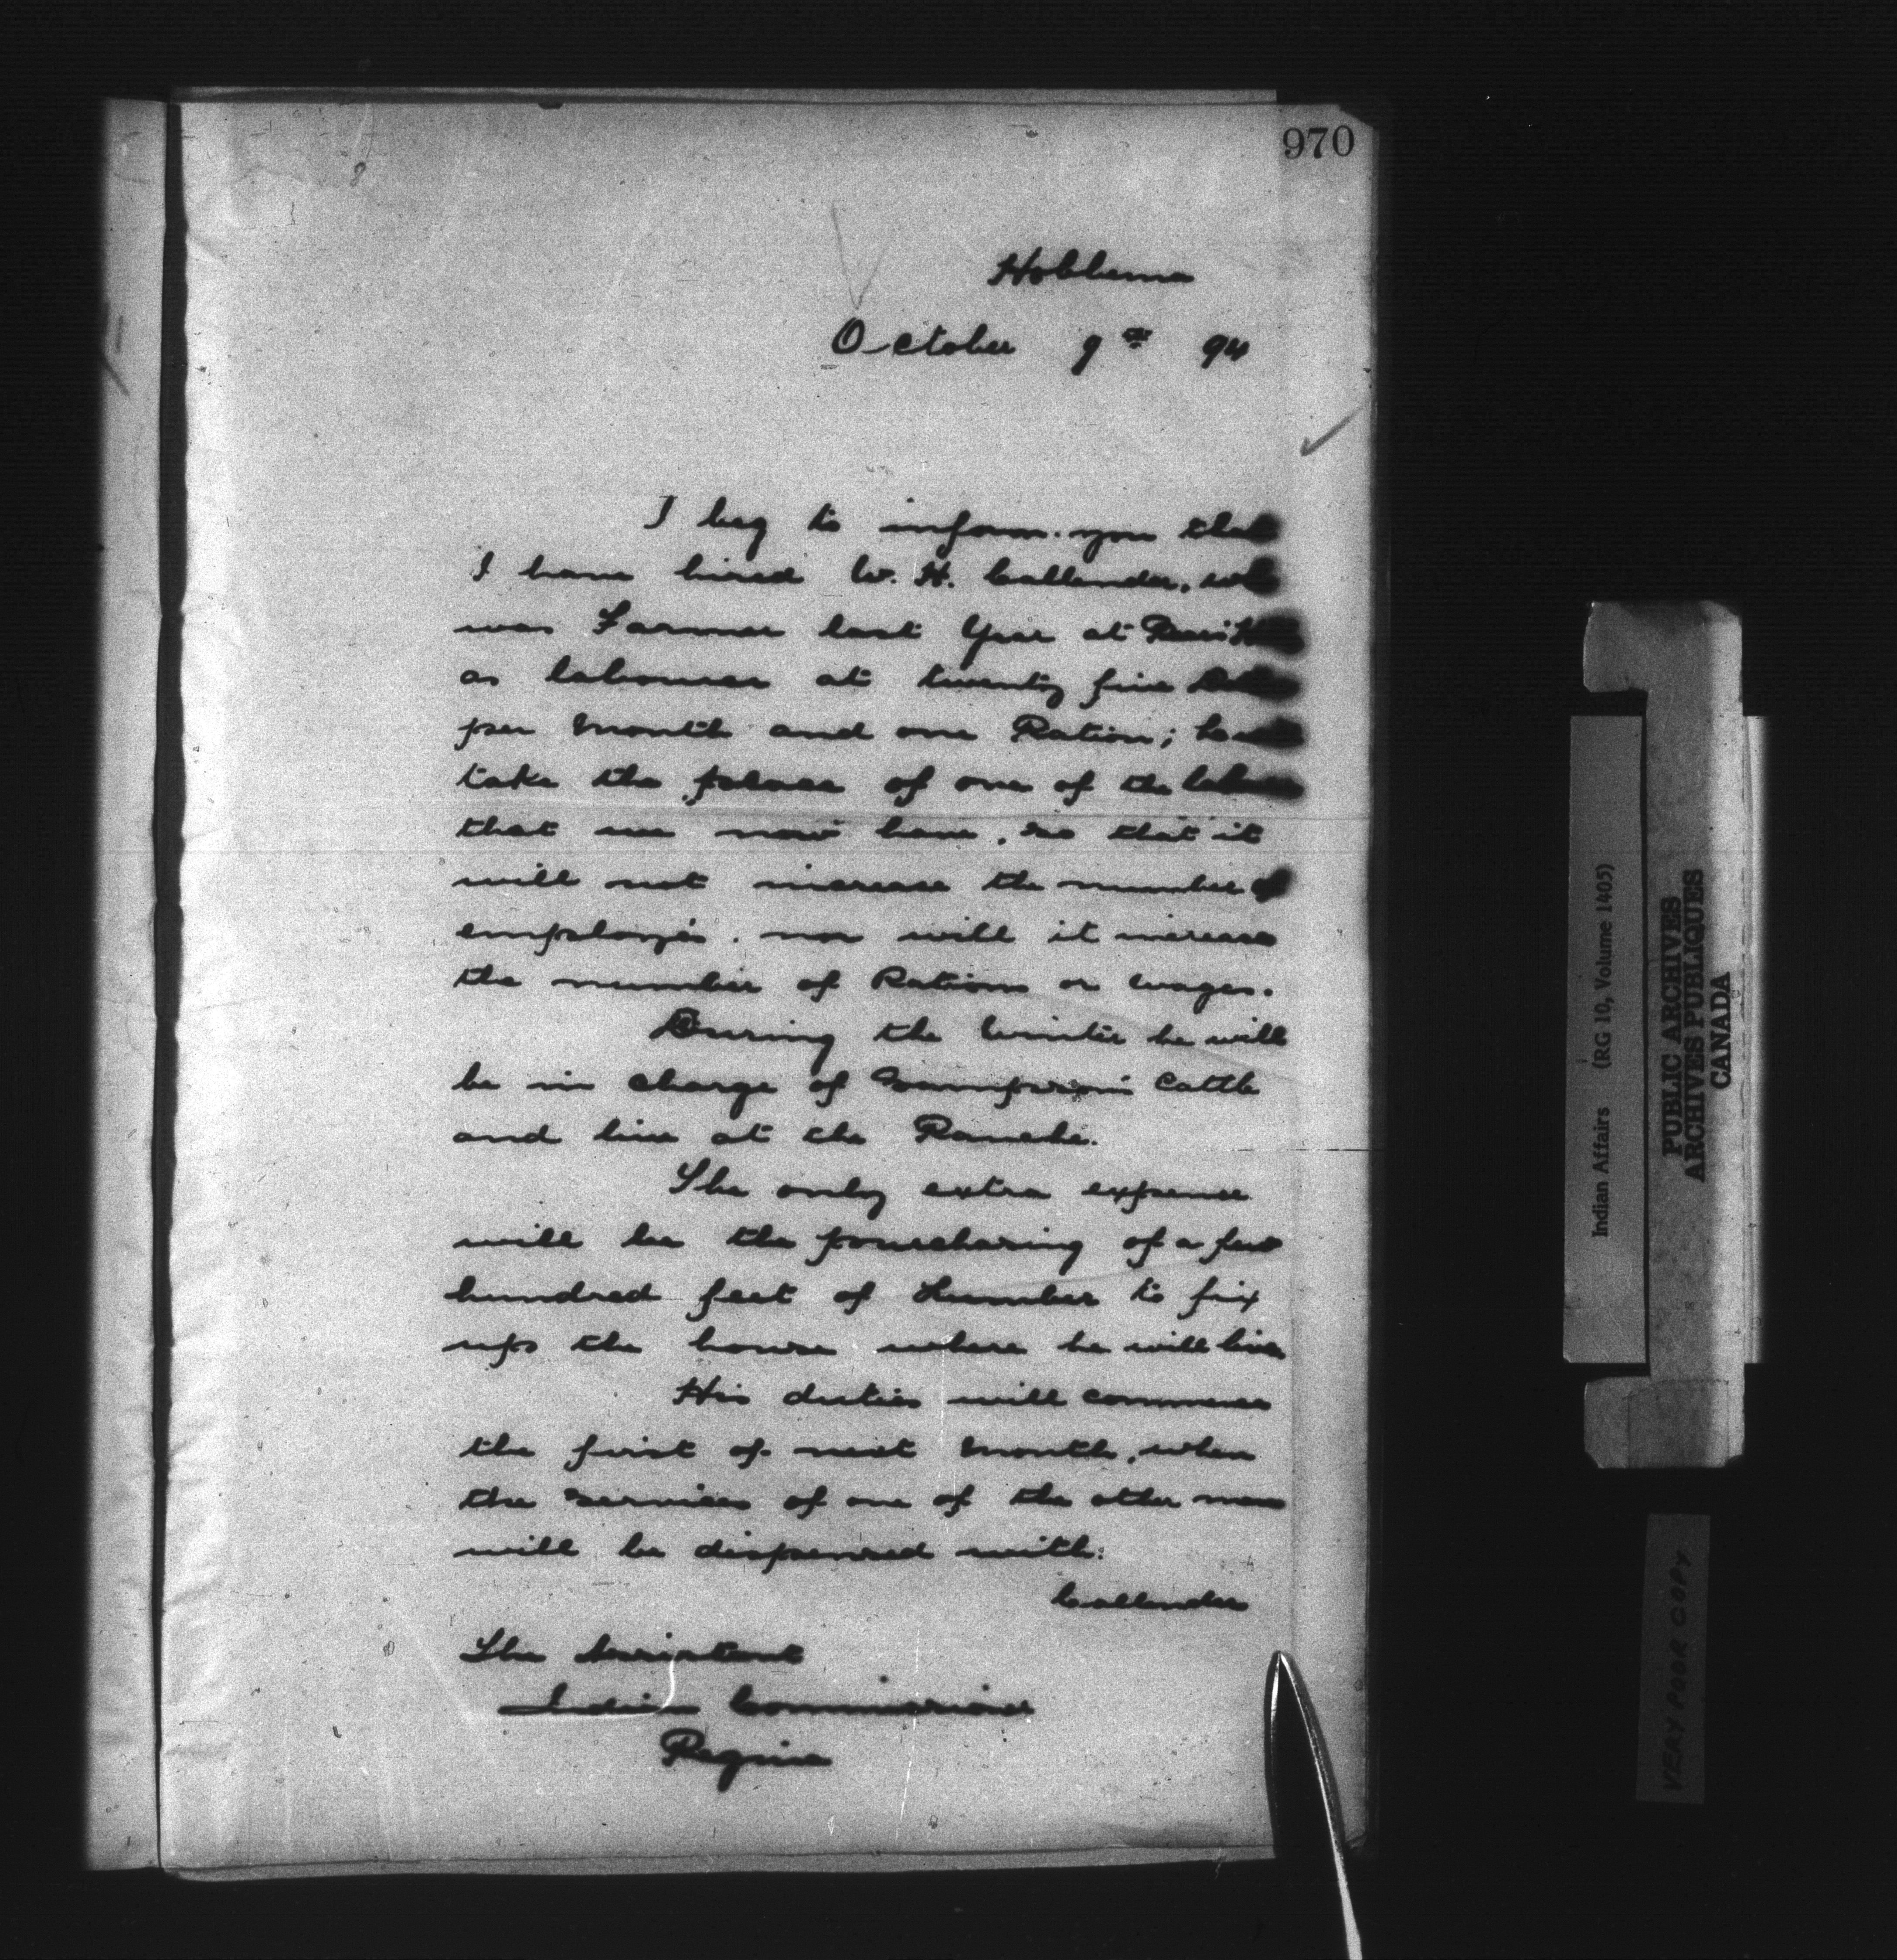 970
Hobbema
October 9th 94
I beg to inform you that
I have hired W. H. Callender, who
was Farmer last Year at
as labourer at twenty five
per Month and one Ration; he will
take the place of one of the
that we now have, so that it
will not increase the number of
employés. nor will it increase
the number of Rations or wages.
During the Winter he will
be in charge of Sampson's Cattle
and live at the Ranche.
The only extra expense
will be the purchasing of a few
hundred feet of Lumber to fix
up the house where he will live
His duties will commence
the first of next Month, when
the services of one of the other men
will be dispensed with.
Callender
The Assistant
Indian Commissioner
Regina
Indian Affairs (RG 10, Volume 1405)
PUBLIC ARCHIVES
ARCHIVES PUBLIQUES
CANADA
VERY POOR COPY